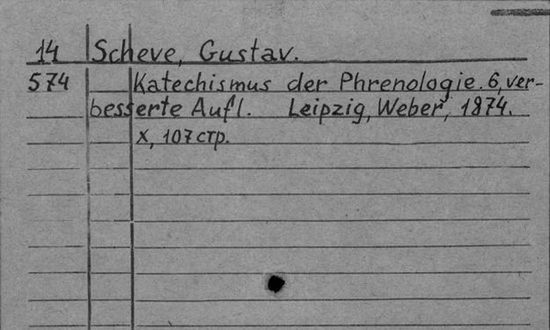 14 Scheve, Gustav.
574 Katechismus der Phrenologie. 6, ver-
besserte Aufl. Leipzig, Weber, 1874.
X, 107 стр.